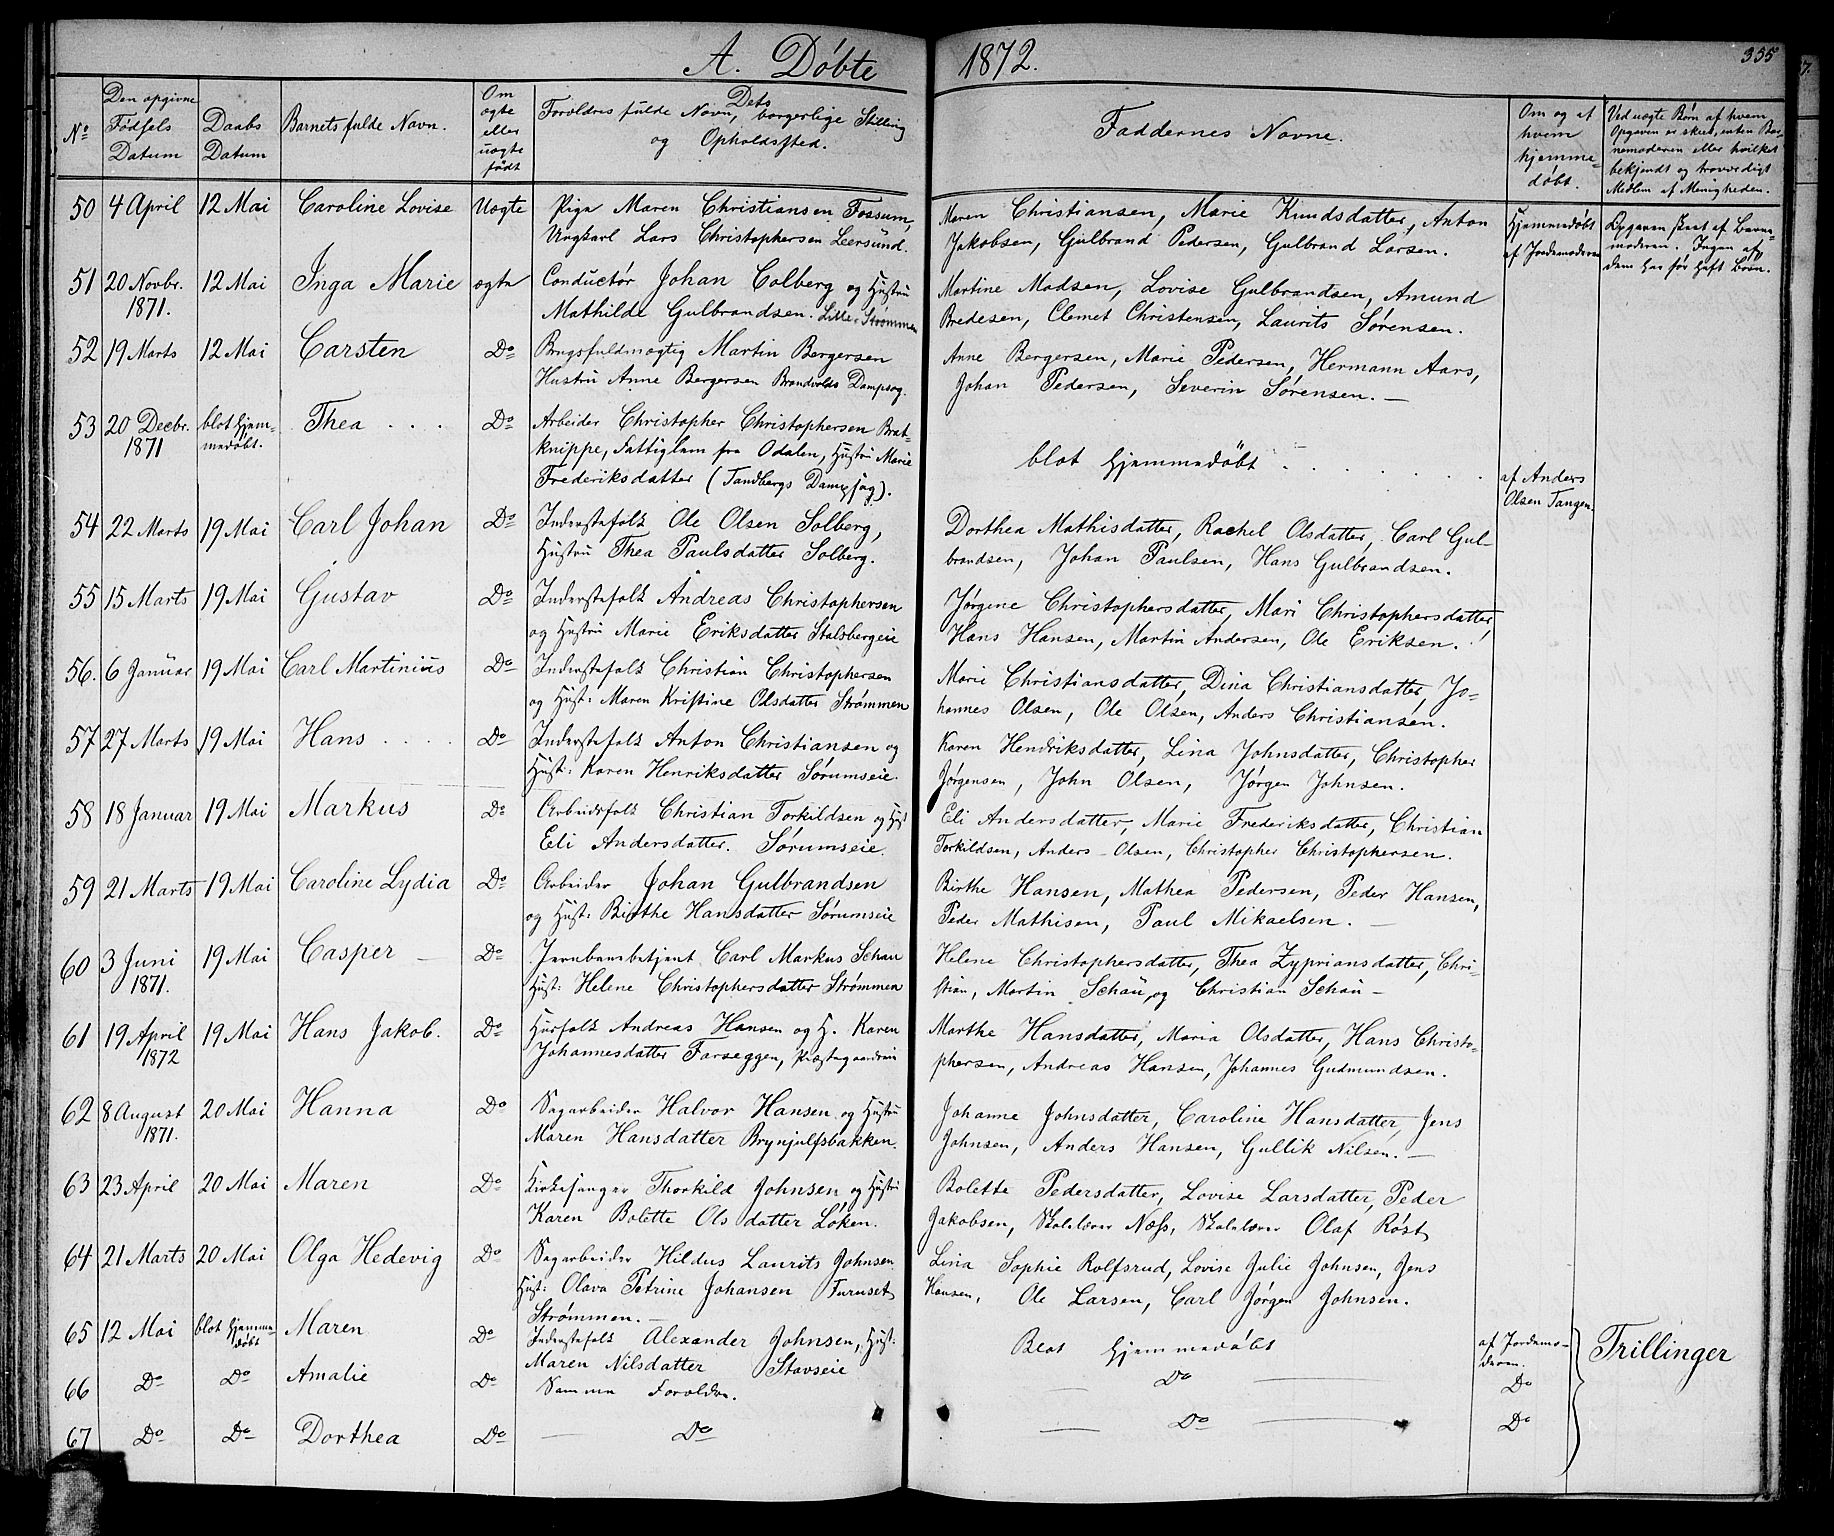 A. Døbte 1872.
355
No
Den opgivne Fødsels Datum
Daabs Datum
Barnets fulde Navn.
Om ægte eller uægte født
Forældres fulde Navn, Dets borgerlige Stilling og Opholdssted.
Faddernes Navne.
Om og af hvem hjemmedøbt.
Ved uægte Børn af hvem Opgaven er skeet, enten Barnemoderen eller hvilket bekjendt og troværdigt Medlem af Menigheden.
50 4 April 12 Mai Caroline Lovise Uægte Pige Maren Christiansen Fossum, Maren Christiansen, Marie Knudsdatter, Anton Hjemmedøbt Opgaven skeet af Barne-
Ungkarl Lars Christophersen Leersund. Jakobsen, Gulbrand Pedersen, Gulbrand Larsen. af Jordemoderen moderen. Ingen af
dem har før haft Børn.
51 20 Novbr. 12 Mai Inga Marie ægte Conductør Johan Colberg og Hustru Martine Madsen, Lovise Gulbrandsen, Amund
1871. Mathilde Gulbrandsen. Lille-Strømmen Bredesen, Clemet Christensen, Laurits Sørensen.
52 19 Marts 12 Mai Carsten Do Brugsfuldmægtig Martin Bergersen Anne Bergersen, Marie Pedersen, Hermann Aars,
Hustru Anne Bergersen Brandvolds Dampsag. Johan Pedersen, Severin Sørensen. —
53 20 Decbr. blot hjem- Thea . . . Do Arbeider Christopher Christophersen Brat-
1871 medøbt. knippe, Fattiglem fra Odalen, Hustru Marie blot hjemmedøbt
Frederiksdatter (Tandbergs Dampsag). af Anders
Olsen Tangen.
54 22 Marts 19 Mai Carl Johan Do Inderstefolk Ole Olsen Solberg, Dorthea Mathisdatter, Rachel Olsdatter, Carl Gul-
Hustru Thea Paulsdatter Solberg. brandsen, Johan Paulsen, Hans Gulbrandsen.
55 15 Marts 19 Mai Gustav Do Inderstefolk Andreas Christophersen Jørgene Christophersdatter, Mari Christophersdatter,
og Hustru Marie Eriksdatter Stalsbergeie Hans Hansen, Martin Andersen, Ole Eriksen.
56. 6 Januar 19 Mai Carl Martinius Do Inderstefolk Christian Christophersen Marie Christiansdatter, Dina Christiansdatter, Jo-
og Hust: Maren Kristine Olsdatter Strømmen hannes Olsen, Ole Olsen, Anders Christiansen.
57 27 Marts 19 Mai Hans . . . . Do Inderstefolk Anton Christiansen og Karen Hendriksdatter, Lina Johnsdatter, Christopher
Hust: Karen Henriksdatter Sørumseie. Jørgensen, John Olsen, Jørgen Johnsen.
58 18 Januar 19 Mai Markus Do Arbeidsfolk Christian Torkildsen og Hust Eli Andersdatter, Marie Frederiksdatter, Christian
Eli Andersdatter. Sørumseie. Torkildsen, Anders Olsen, Christopher Christophersen.
59 21 Marts 19 Mai Caroline Lydia Do Arbeider Johan Gulbrandsen Birthe Hansen, Mathea Pedersen, Peder Hansen,
og Hust: Birthe Hansdatter Sørumseie Peder Mathisen, Paul Mikaelsen. —
60 3 Juni 19 Mai Casper — Do Jernbanebetjent Carl Markus Schau Helene Christophersdatter, Thea Zypriansdatter, Chri-
1871. Hust: Helene Christophersdatter Strømmen stian, Martin Schau, og Christian Schau —
61 19 April 19 Mai Hans Jakob. Do Husfolk Andreas Hansen og H. Karen Marthe Hansdatter, Maria Olsdatter, Hans Christo-
1872 Johannesdatter Farseggen, Præstegaardseie phersen, Andreas Hansen, Johannes Gudmundsen.
62 8 August 20 Mai Hanna Do Sagarbeider Halvor Hansen og Hustru Johanne Johnsdatter, Caroline Hansdatter, Jens
1871. Maren Hansdatter Brynjulfsbakken. Johnsen, Anders Hansen, Gullik Nilsen. —
63 23 April 20 Mai Maren Do Kirkesanger Thorkild Johnsen og Hustru Bolette Pedersdatter, Lovise Larsdatter, Peder
Karen Bolette Olsdatter Løken. Jakobsen, Skolelærer Næss, Skolelærer Olaf Røst
64 21 Marts 20 Mai Olga Hedevig Do Sagarbeider Hildus Laurits Johnsen Lina Sophie Rolfsrud, Lovise Julie Johnsen, Jens
Hust: Olava Petrine Johansen Furuset Hansen, Ole Larsen, Carl Jørgen Johnsen.
Strømmen. —
65 12 Mai blot hjemme- Maren Do Inderstefolk Alexander Johnsen, Hust: Blot hjemmedøbt af Jordemo- Trillinger
døbt Maren Nilsdatter Stavseie deren.
66 Do Do Amalie Do Samme Forældre. Do Do
67 Do Do Dorthea Do Do Do Do